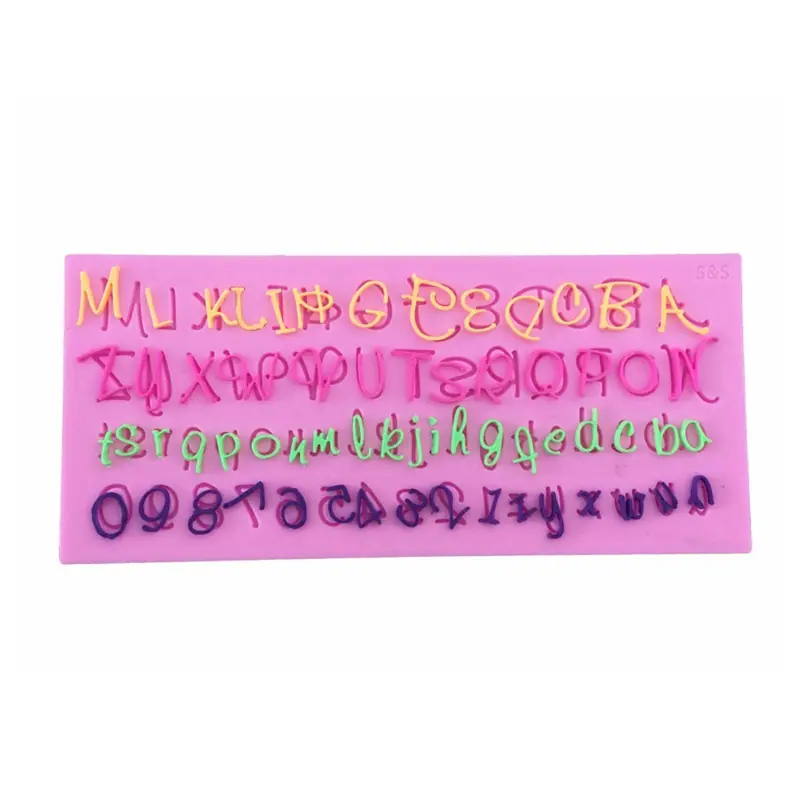 S&S
M L K L I H G F E D C B A
Z Y X W V U T S R Q P O N
t s r q p o n m l k j i h g f e d c b a
0 9 8 7 6 5 4 3 2 1 z y x w v u